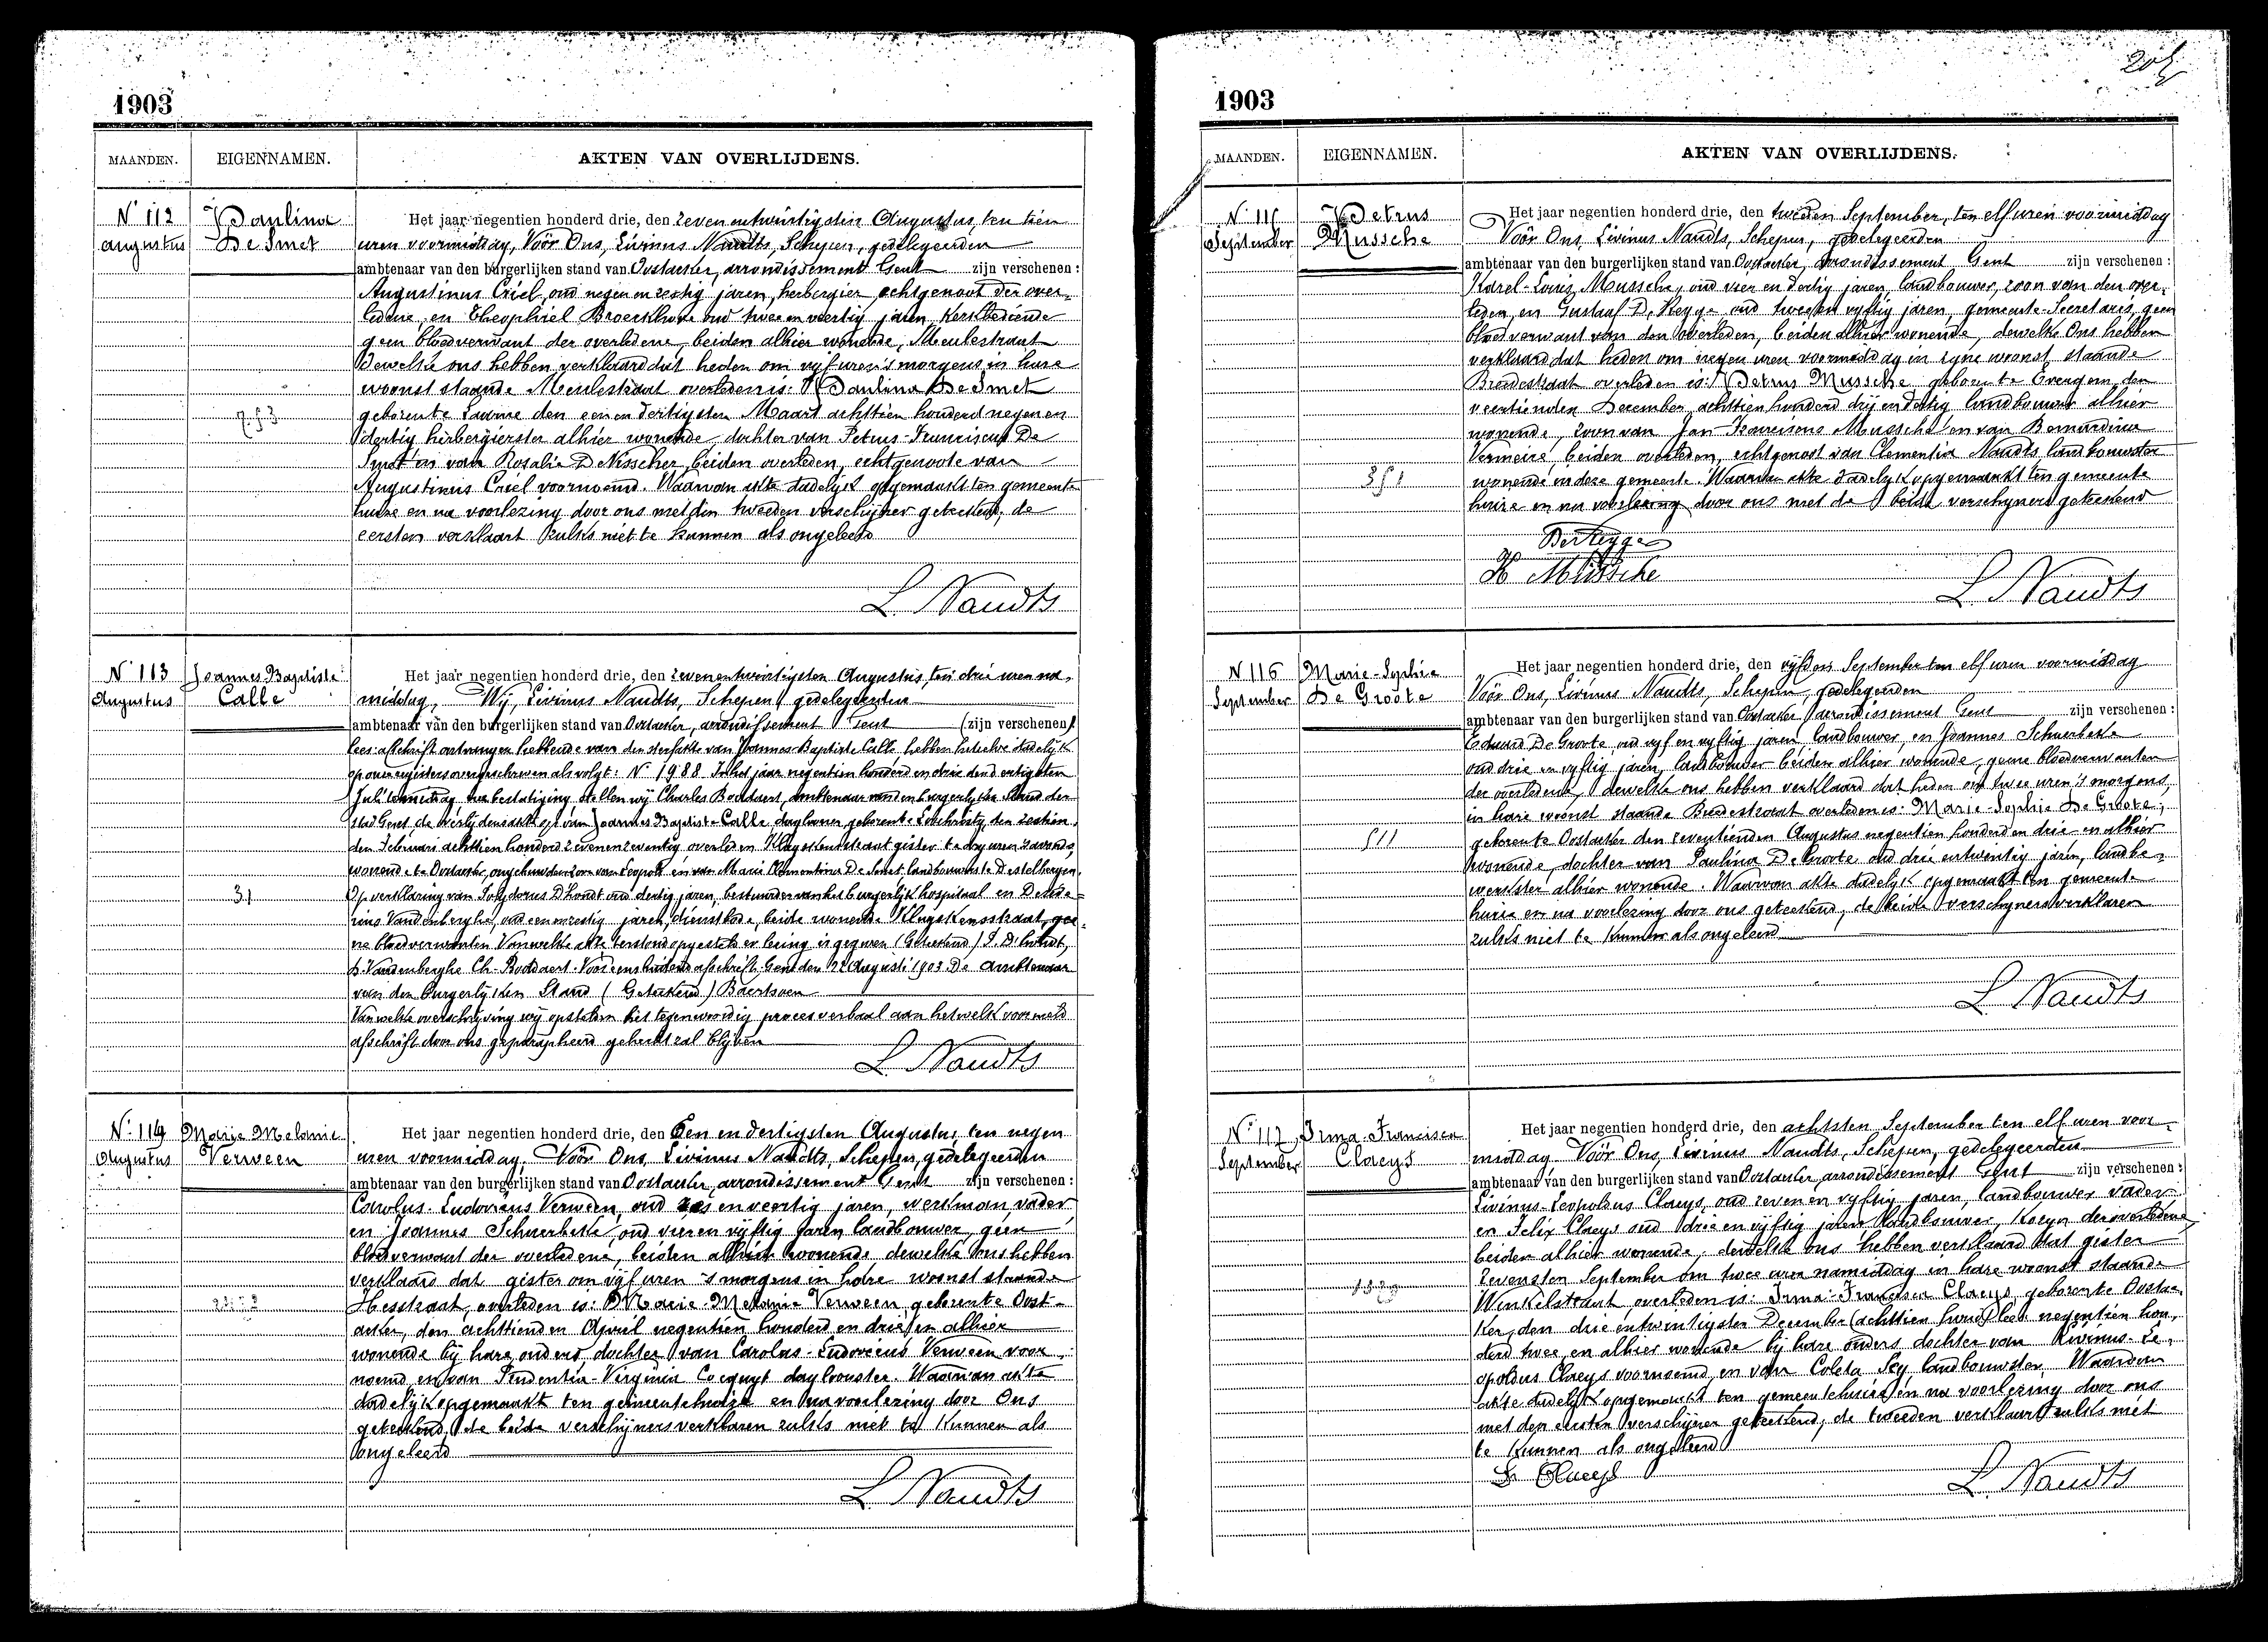 1903
MAANDEN. EIGENNAMEN. AKTEN VAN OVERLIJDENS.
Nr 112
augustus
Paulina
De Smet
Het jaar negentien honderd drie, den zeven entwintigsten Augustus, ten tien
uren voormiddag, Voor Ons, Livinus Naudts, Schepen, gedelegeerden
ambtenaar van den burgerlijken stand van Oostacker, arrondissement Gent zijn verschenen:
Augustinus Criel, oud negen en zestig jaren, herbergier echtgenoot der over-
ledene, en Theophiel Broeckhove oud twee en veertig jaren, Kerkbediende
geen bloedverwant der overledene, beiden alhier wonende, Meulestraat
dewelke ons hebben verklaard dat heden om vijf uren 's morgens in hare
woonst staande Meulestraat overleden is: Paulina De Smet
geboren te den een en dertigsten Maart achttien honderd negen en
dertig herbergierster alhier wonende, dochter van Petrus-Franciscus De
Smet en van Rosalie De Visscher, beiden overleden, echtgenoote van
Augustinus Criel voornoemd. Waarvan akte dadelyk opgemaakt ten gemeente
huize en na voorlezing door ons met den tweeden verschijner geteekend, de
eersten verklaart zulks niet te kunnen als ongeleerd
L. Naudts
Nr 113
Augustus
Joannes Baptiste
Calle
31
Het jaar negentien honderd drie, den zevenentwintigsten Augustus, ten drie uren na-
middag, Wij, Livinus Naudts, Schepen, gedelegeerden
ambtenaar van den burgerlijken stand van Oostacker, arrondissement Gent (zijn verschenen)
lees: afschrift ontvangen hebbende van den sterfakte van Joannes-Baptiste Calle hebben hetzelve dadelijk
op onze registers overgeschreven als volgt: Nr 1988 In het jaar negentien honderd en drie den dertigsten
Juli voormiddag na bestatiging stellen wij Charles Boddaert, ambtenaar van den burgerlijken Stand der
stad Gent, de overlijdensakte op van Joannes Baptiste Calle, daglooner, geboren te Loochristy, den zestien-
den Februari achttien honderd zevenenzeventig overleden Kluyskensstraat gister te dry uren 's avonds,
wonende te Oostacker, ongehuwden zoon van Leopold en van Marie Clementina De Smet, landbouwers te Destelbergen.
Op verklaring van Polydorus D'hondt oud dertig jaren, bestuurder van het burgerlijk hospitaal en Deside-
rius Vandenberghe, oud eenenzestig jaren, dienstbode, beide wonende Kluyskensstraat, gee-
ne bloedverwanten Van welke akte terstond opgesteld en lezing is gegeven (Geteekend) P. D'hondt,
D. Vandenberghe Ch. Boddaert. Voor eensluidend afschrift. Gent den 22 Augusti 1903 De Ambtenaar
van den Burgerlijken Stand (Geteekend) Baertsoen
Van welke overschrijving wij opstellen het tegenwoordig proces verbaal aan hetwelk voormeld
afschrift door ons geparapheerd gehecht zal blijven
L. Naudts
Nr 114
Augustus
Marie Melanie
Verween
Het jaar negentien honderd drie, den Een en dertigsten Augustus, ten negen
uren voormiddag, Voor Ons, Livinus Naudts, Schepen, gedelegeerden
ambtenaar van den burgerlijken stand van Oostacker, arrondissement Gent zijn verschenen:
Carolus-Ludovicus Verween, oud zes en veertig jaren, werkman, vader
en Joannes Schuerbeke, oud vier en vijftig jaren, landbouwer, geen
bloedverwant der overledene, beiden alhier wonende dewelke ons hebben
verklaard dat gister om vijf uren 's morgens in hare woonst staande
Hesstraat, overleden is: Marie Melanie Verween, geboren te Oost-
acker, den achttienden April negentien honderd en drie, en alhier
wonende bij hare ouders dochter van Carolus-Ludovicus Verween voor-
noemd en van Prudentia-Virginia Cocquyt daglooonster. Waarvan akte
dadelijk opgemaakt ten gemeentehuize en na voorlezing door Ons
geteekend, de beide verschijners verklaren zulks niet te kunnen als
ongeleerd
L. Naudts
1903
MAANDEN. EIGENNAMEN. AKTEN VAN OVERLIJDENS.
Nr 115
September
Petrus
Mussche
Het jaar negentien honderd drie, den tweeden September, ten elf uren voormiddag
Voor Ons, Livinus Naudts, Schepen, gedelegeerden
ambtenaar van den burgerlijken stand van Oostacker, arrondissement Gent zijn verschenen:
Karel-Louis Mussche, oud vier en dertig jaren, landbouwer, zoon van den over-
leden, en Gustaaf De Regge oud twee en vyftig jaren, gemeente-Secretaris, geen
bloedverwant van den overleden, beiden alhier wonende, dewelke Ons hebben
verklaard dat heden om negen uren voormiddag in zyne woonst staande
Breedestraat overleden is: Petrus Mussche, geboren te Evergem, den
veertienden December achttien honderd drij en dertig landbouwer alhier
wonende, zoon van Jan Franciscus Mussche en van Bernardina
Vermeire beiden overleden, echtgenoot van Clementia Naudts landbouwster
wonende in deze gemeente. Waarvan akte dadelyk opgemaakt ten gemeente
huize en na voorlezing door ons met de beide verschyners geteekend
DeRegge
K Mussche
L. Naudts
N 116
September
Marie-Sophie
De Groote
511
Het jaar negentien honderd drie, den vijfden September ten elf uren voormiddag
Voor Ons, Livinus Naudts, Schepen, gedelegeerden
ambtenaar van den burgerlijken stand van Oostacker, arrondissement Gent zijn verschenen:
Eduard De Groote oud vyf en vyftig jaren, landbouwer, en Joannes Schuerbeke
oud drie en vyftig jaren, landbouwer beiden alhier wonende, geene bloedverwanten
der overledene, dewelke ons hebben verklaard dat heden om twee uren 's morgens,
in hare woonst staande Breedestraat overleden is: Marie-Sophie De Groote,
geboren te Oostacker den zeventienden Augustus negentien honderd en drie en alhier
wonende, dochter van Paulina De Groote oud drie entwintig jaren, landbe-
werkster alhier wonende. Waarvan akte dadelyk opgemaakt ten gemeente
huize en na voorlezing door ons geteekend, de beide verschyners verklaren
zulks niet te kunnen als ongeleerd
L. Naudts
Nr 117
September
Irma-Francisca
Claeys
Het jaar negentien honderd drie, den achtsten September ten elf uren voor-
middag Voor Ons, Livinus Naudts, Schepen, gedelegeerden
ambtenaar van den burgerlijken stand van Oostacker, arrondissement Gent zijn verschenen:
Livinus-Leopoldus Claeys, oud zeven en vyftig jaren, landbouwer vader
en Felix Claeys oud drie en vijftig jaren landbouwer, kozyn der overledene,
beiden alhier wonende, dewelke ons hebben verklaard dat gister
zevensten September om twee uren namiddag in hare woonst staande
Winkelstraat overleden is: Irma-Francisca Claeys geboren te Oostac-
ker, den drie entwintigsten December (achttien hond) lees negentien hon-
derd twee en alhier wonende bij hare ouders dochter van Livinus-Le-
opoldus Claeys voornoemd en van Coleta Sey landbouwster. Waarvan
akte dadelyk opgemaakt ten gemeentehuize en na voorlezing door ons
met den eersten verschijner geteekend, de tweeden verklaart zulks niet
te kunnen als ongeleerd
L. Claeys
L. Naudts